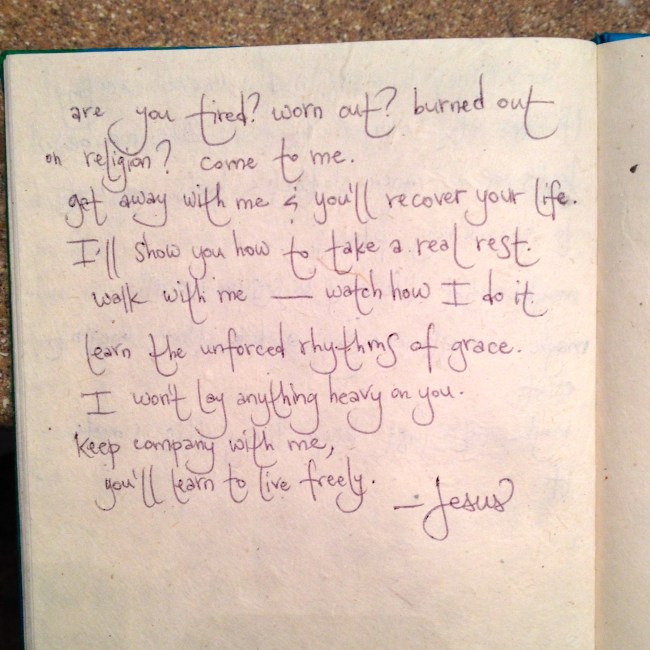 are you tired? worn out? burned out
on religion? come to me.
get away with me & you'll recover your life.
I'll show you how to take a real rest.
walk with me — watch how I do it
learn the unforced rhythms of grace.
I won't lay anything heavy on you.
keep company with me,
you'll learn to live freely.
— Jesus